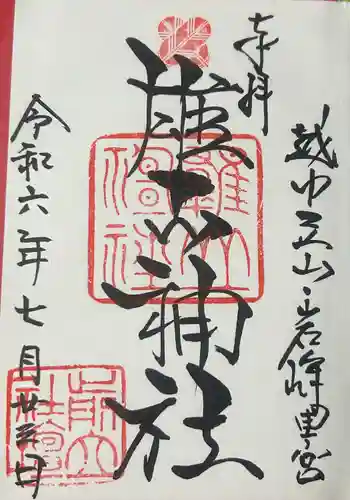 奉拝
越中立山岩峅里宮
雄山神社
雄山
神社
令和六年七月 日
前立
社壇